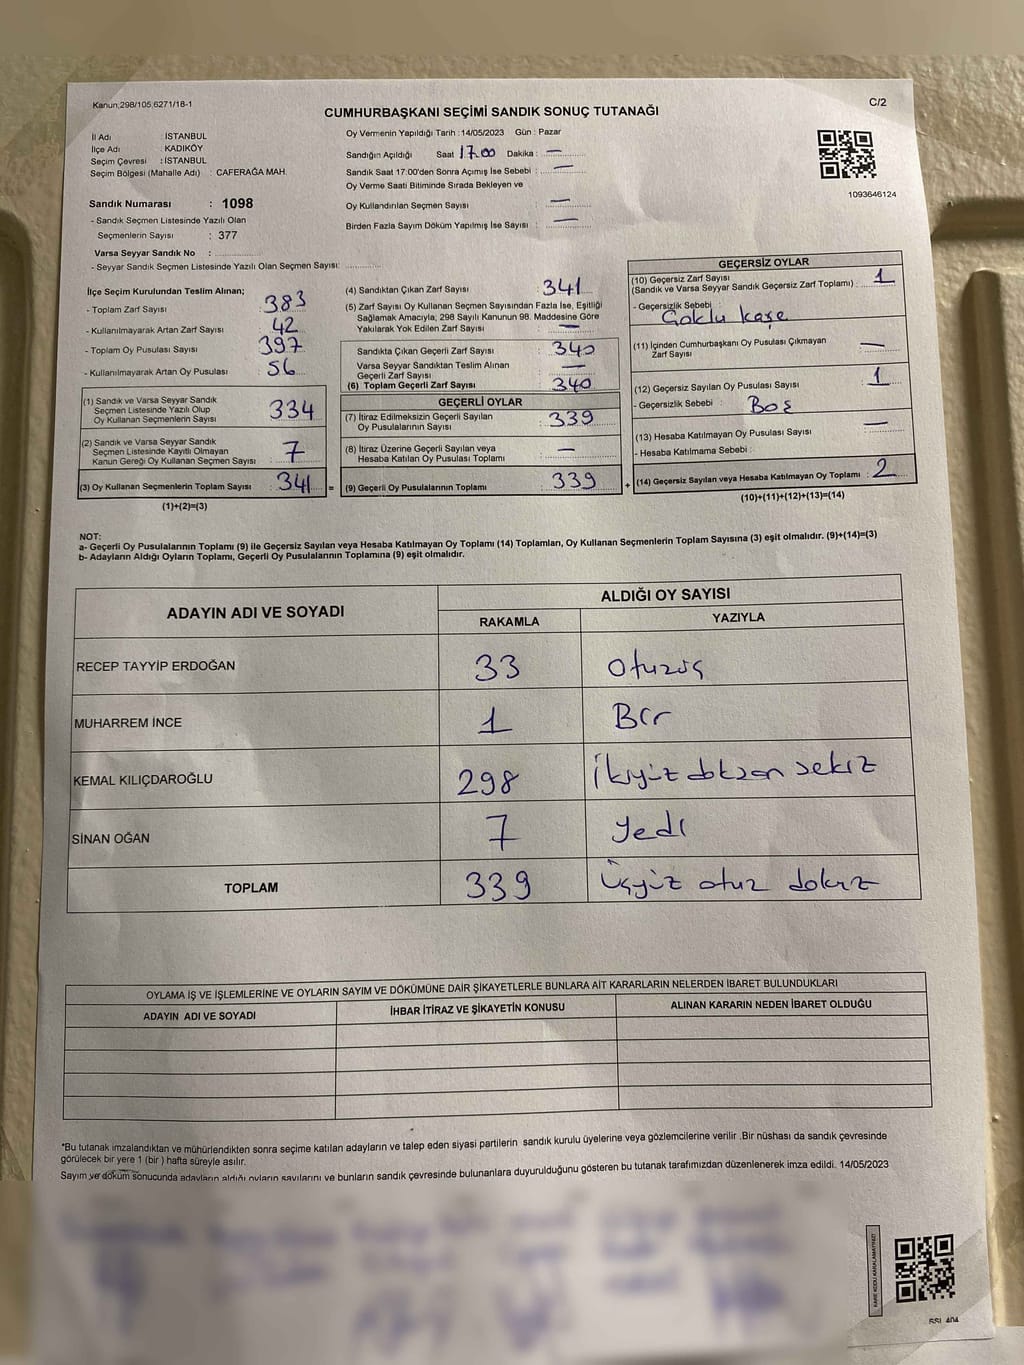 Kanun;298/105,6271/18-1
C/2
CUMHURBAŞKANI SEÇİMİ SANDIK SONUÇ TUTANAĞI
İl Adı : İSTANBUL
İlçe Adı : KADIKÖY
Seçim Çevresi : İSTANBUL
Seçim Bölgesi (Mahalle Adı) : CAFERAĞA MAH.
Sandık Numarası : 1098
- Sandık Seçmen Listesinde Yazılı Olan
Seçmenlerin Sayısı : 377
Varsa Seyyar Sandık No :
- Seyyar Sandık Seçmen Listesinde Yazılı Olan Seçmen Sayısı:
Oy Vermenin Yapıldığı Tarih : 14/05/2023 Gün : Pazar
Sandığın Açıldığı Saat 17.00 Dakika : —
Sandık Saat 17:00'den Sonra Açımış İse Sebebi : —
Oy Verme Saati Bitiminde Sırada Bekleyen ve
Oy Kullandırılan Seçmen Sayısı : —
Birden Fazla Sayım Döküm Yapılmış İse Sayısı : —
1093646124
İlçe Seçim Kurulundan Teslim Alınan;
- Toplam Zarf Sayısı : 383
- Kullanılmayarak Artan Zarf Sayısı : 42
- Toplam Oy Pusulası Sayısı : 397
- Kullanılmayarak Artan Oy Pusulası : 56
(1) Sandık ve Varsa Seyyar Sandık
Seçmen Listesinde Yazılı Olup
Oy Kullanan Seçmenlerin Sayısı : 334
(2) Sandık ve Varsa Seyyar Sandık
Seçmen Listesinde Kayıtlı Olmayan
Kanun Gereği Oy Kullanan Seçmen Sayısı : 7
(3) Oy Kullanan Seçmenlerin Toplam Sayısı : 341 =
(1)+(2)=(3)
(4) Sandıktan Çıkan Zarf Sayısı : 341
(5) Zarf Sayısı Oy Kullanan Seçmen Sayısından Fazla İse, Eşitliği
Sağlamak Amacıyla; 298 Sayılı Kanunun 98. Maddesine Göre
Yakılarak Yok Edilen Zarf Sayısı : —
Sandıkta Çıkan Geçerli Zarf Sayısı : 340
Varsa Seyyar Sandıktan Teslim Alınan
Geçerli Zarf Sayısı : —
(6) Toplam Geçerli Zarf Sayısı : 340
GEÇERLİ OYLAR
(7) İtiraz Edilmeksizin Geçerli Sayılan
Oy Pusulalarının Sayısı : 339
(8) İtiraz Üzerine Geçerli Sayılan veya
Hesaba Katılan Oy Pusulası Toplamı : —
(9) Geçerli Oy Pusulalarının Toplamı : 339 +
GEÇERSİZ OYLAR
(10) Geçersiz Zarf Sayısı
(Sandık ve Varsa Seyyar Sandık Geçersiz Zarf Toplamı) : 1
- Geçersizlik Sebebi :
Çoklu kaşe
(11) İçinden Cumhurbaşkanı Oy Pusulası Çıkmayan
Zarf Sayısı : —
(12) Geçersiz Sayılan Oy Pusulası Sayısı : 1
- Geçersizlik Sebebi : Boş
(13) Hesaba Katılmayan Oy Pusulası Sayısı : —
- Hesaba Katılmama Sebebi :
(14) Geçersiz Sayılan veya Hesaba Katılmayan Oy Toplamı : 2
(10)+(11)+(12)+(13)=(14)
NOT:
a- Geçerli Oy Pusulalarının Toplamı (9) ile Geçersiz Sayılan veya Hesaba Katılmayan Oy Toplamı (14) Toplamları, Oy Kullanan Seçmenlerin Toplam Sayısına (3) eşit olmalıdır. (9)+(14)=(3)
b- Adayların Aldığı Oyların Toplamı, Geçerli Oy Pusulalarının Toplamına (9) eşit olmalıdır.
ADAYIN ADI VE SOYADI
ALDIĞI OY SAYISI
RAKAMLA YAZIYLA
RECEP TAYYİP ERDOĞAN 33 Otuzüç
MUHARREM İNCE 1 Bir
KEMAL KILIÇDAROĞLU 298 İkiyüz doksan sekiz
SİNAN OĞAN 7 Yedi
TOPLAM 339 Üçyüz otuz dokuz
OYLAMA İŞ VE İŞLEMLERİNE VE OYLARIN SAYIM VE DÖKÜMÜNE DAİR ŞİKAYETLERLE BUNLARA AİT KARARLARIN NELERDEN İBARET BULUNDUKLARI
ADAYIN ADI VE SOYADI İHBAR İTİRAZ VE ŞİKAYETİN KONUSU ALINAN KARARIN NEDEN İBARET OLDUĞU
*Bu tutanak imzalandıktan ve mühürlendikten sonra seçime katılan adayların ve talep eden siyasi partilerin sandık kurulu üyelerine veya gözlemcilerine verilir .Bir nüshası da sandık çevresinde
görülecek bir yere 1 (bir ) hafta süreyle asılır.
Sayım ve döküm sonucunda adayların aldığı oyların sayılarını ve bunların sandık çevresinde bulunanlara duyurulduğunu gösteren bu tutanak tarafımızdan düzenlenerek imza edildi. 14/05/2023
KARE KODU KARALAMAYINIZ!